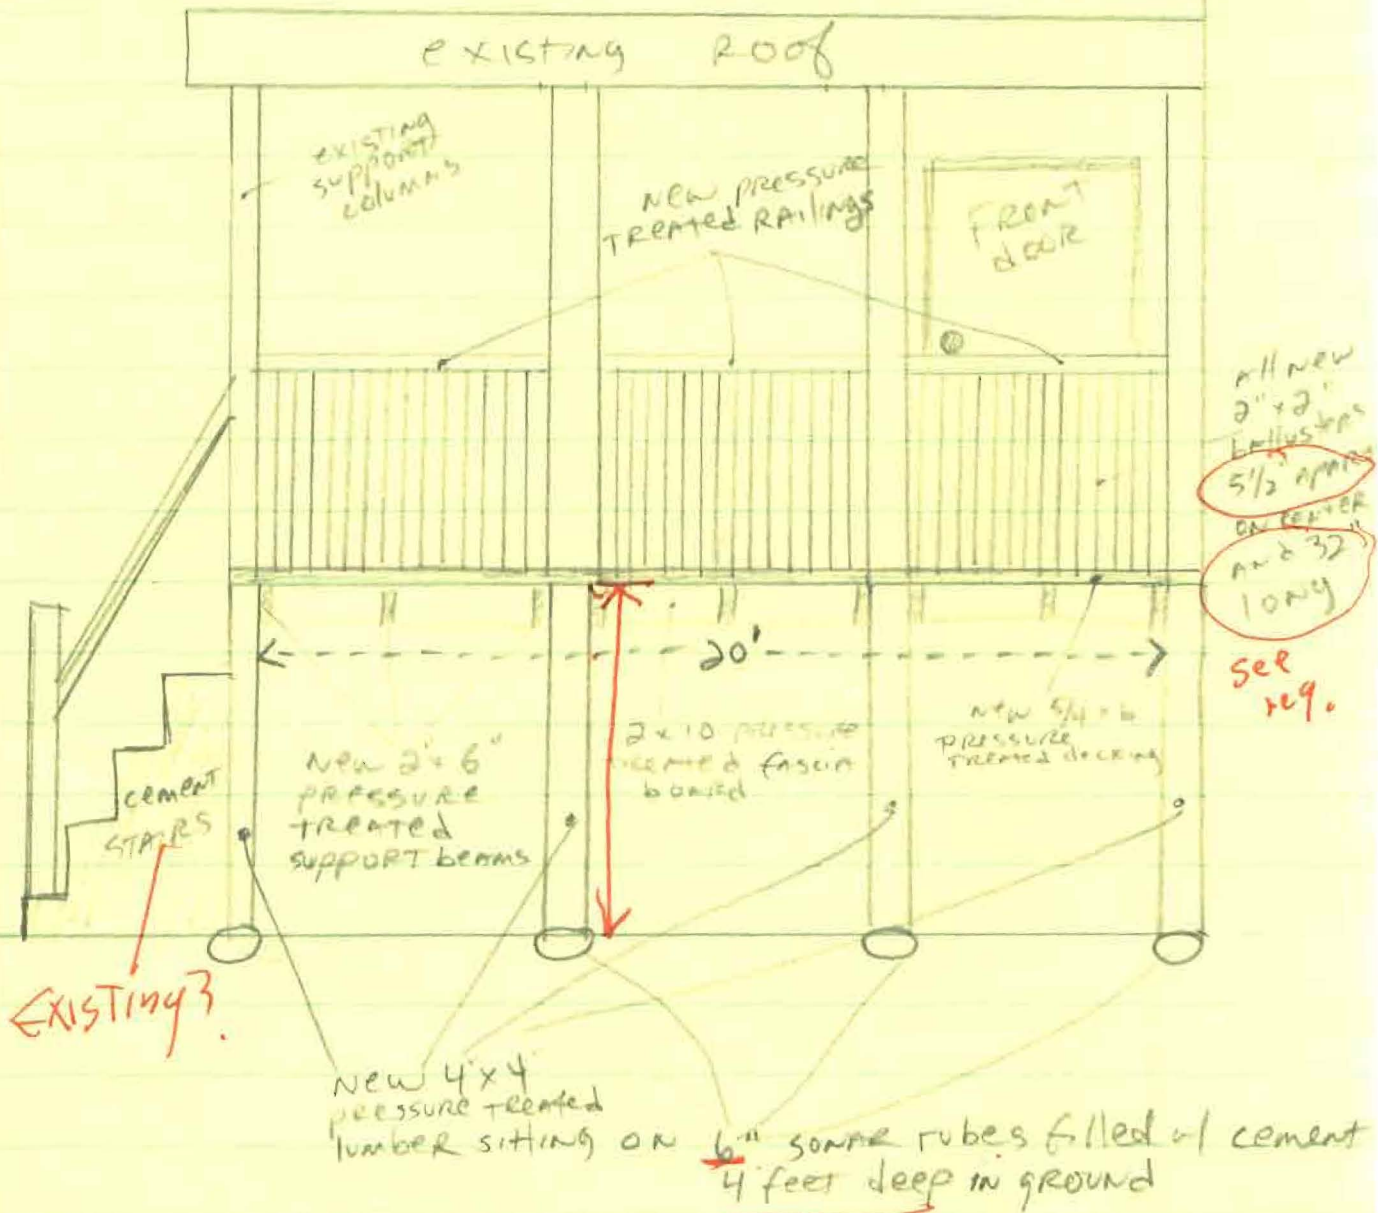 existing Roof
existing
support
columns
New pressure
treated Railings
FRONT
dooR
All New
2" x 2"
ballusters
5 1/2" APART
ON CENTER
And 32"
long
see
reg.
20'
New 2x6"
pressure
treated
support beams
2x10 pressure
treated fascia
board
New 5/4 x 6
pressure
treated decking
cement
STAIRS
EXISTING?
New 4x4
pressure treated
lumber sitting on 6" sonar tubes filled w/ cement
4 feet deep in ground